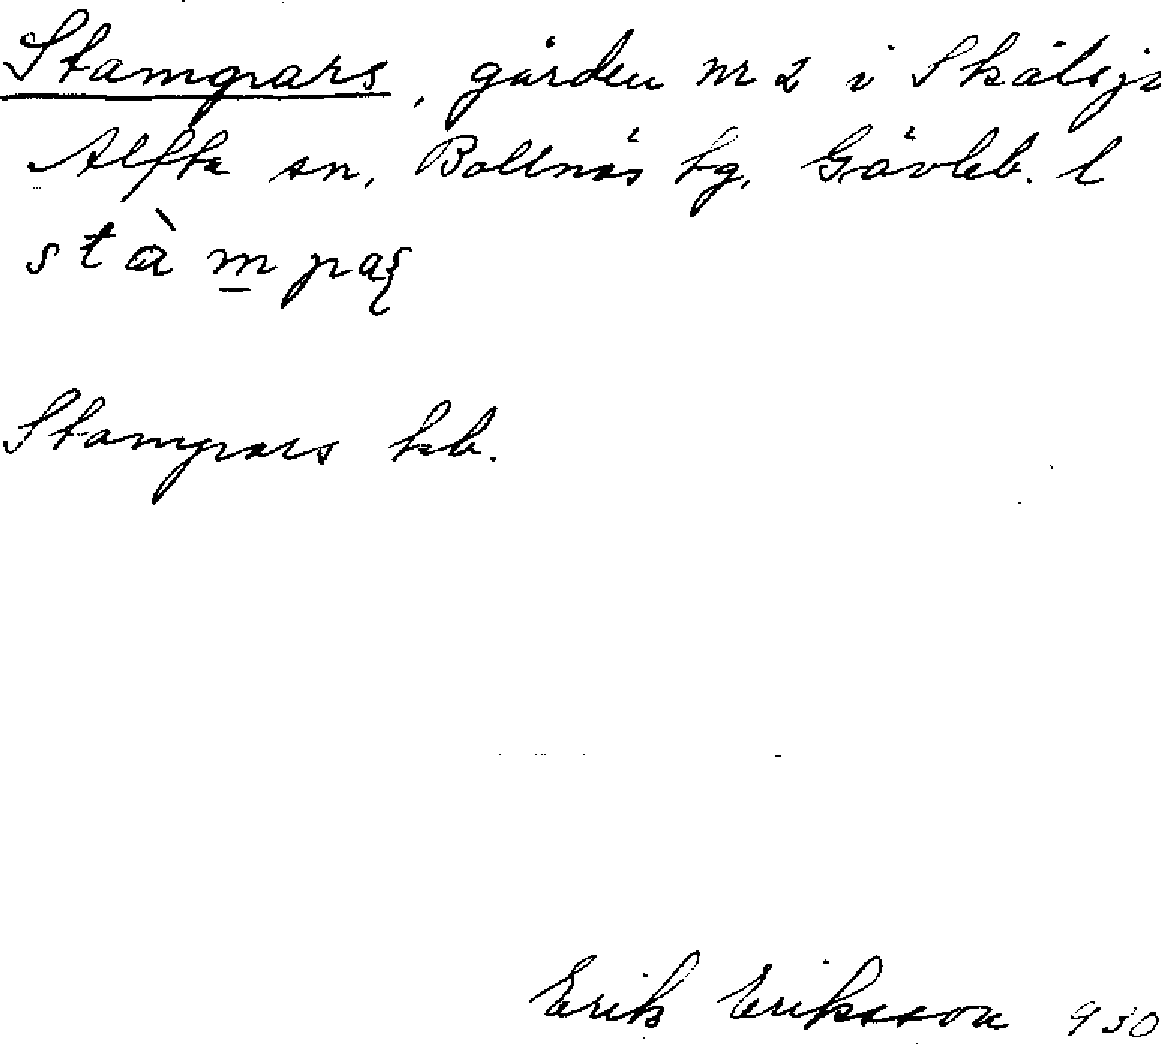 Stampars, gården nr 2 i Skålsjö
Alfta sn, Bollnäs tg, Gävleb. l
stàm̲paʂ
Stampars kb.
Erik Eriksson 930